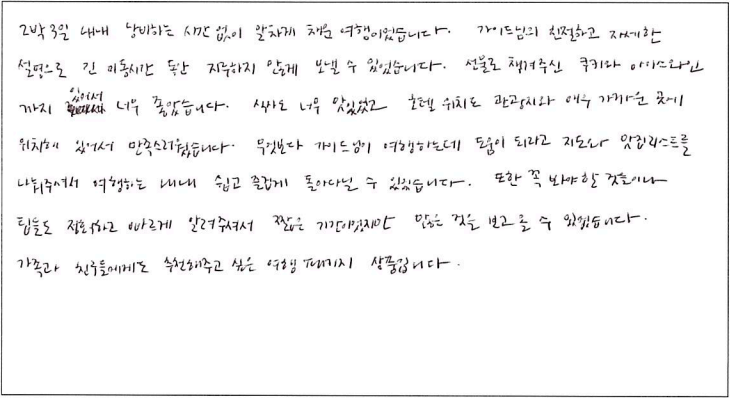 2박 3일 내내 낭비하는 시간 없이 알차게 채운 여행이었습니다. 가이드님의 친절하고 자세한
설명으로 긴 이동시간 동안 지루하지 않게 보낼 수 있었습니다. 선물로 챙겨주신 쿠키와 아이스와인
까지 있어서 너무 좋았습니다. 식사도 너무 맛있었고 호텔 위치도 관광지와 매우 가까운 곳에
위치해 있어서 만족스러웠습니다. 무엇보다 가이드님이 여행하는데 도움이 되라고 지도와 맛집리스트를
나눠주셔서 여행하는 내내 쉽고 즐겁게 돌아다닐 수 있었습니다. 또한 꼭 봐야할 것들이나
팁들도 정확하고 빠르게 알려주셔서 짧은 기간이었지만 많은 것을 보고 올 수 있었습니다.
가족과 친구들에게도 추천해주고 싶은 여행 패키지 상품입니다.